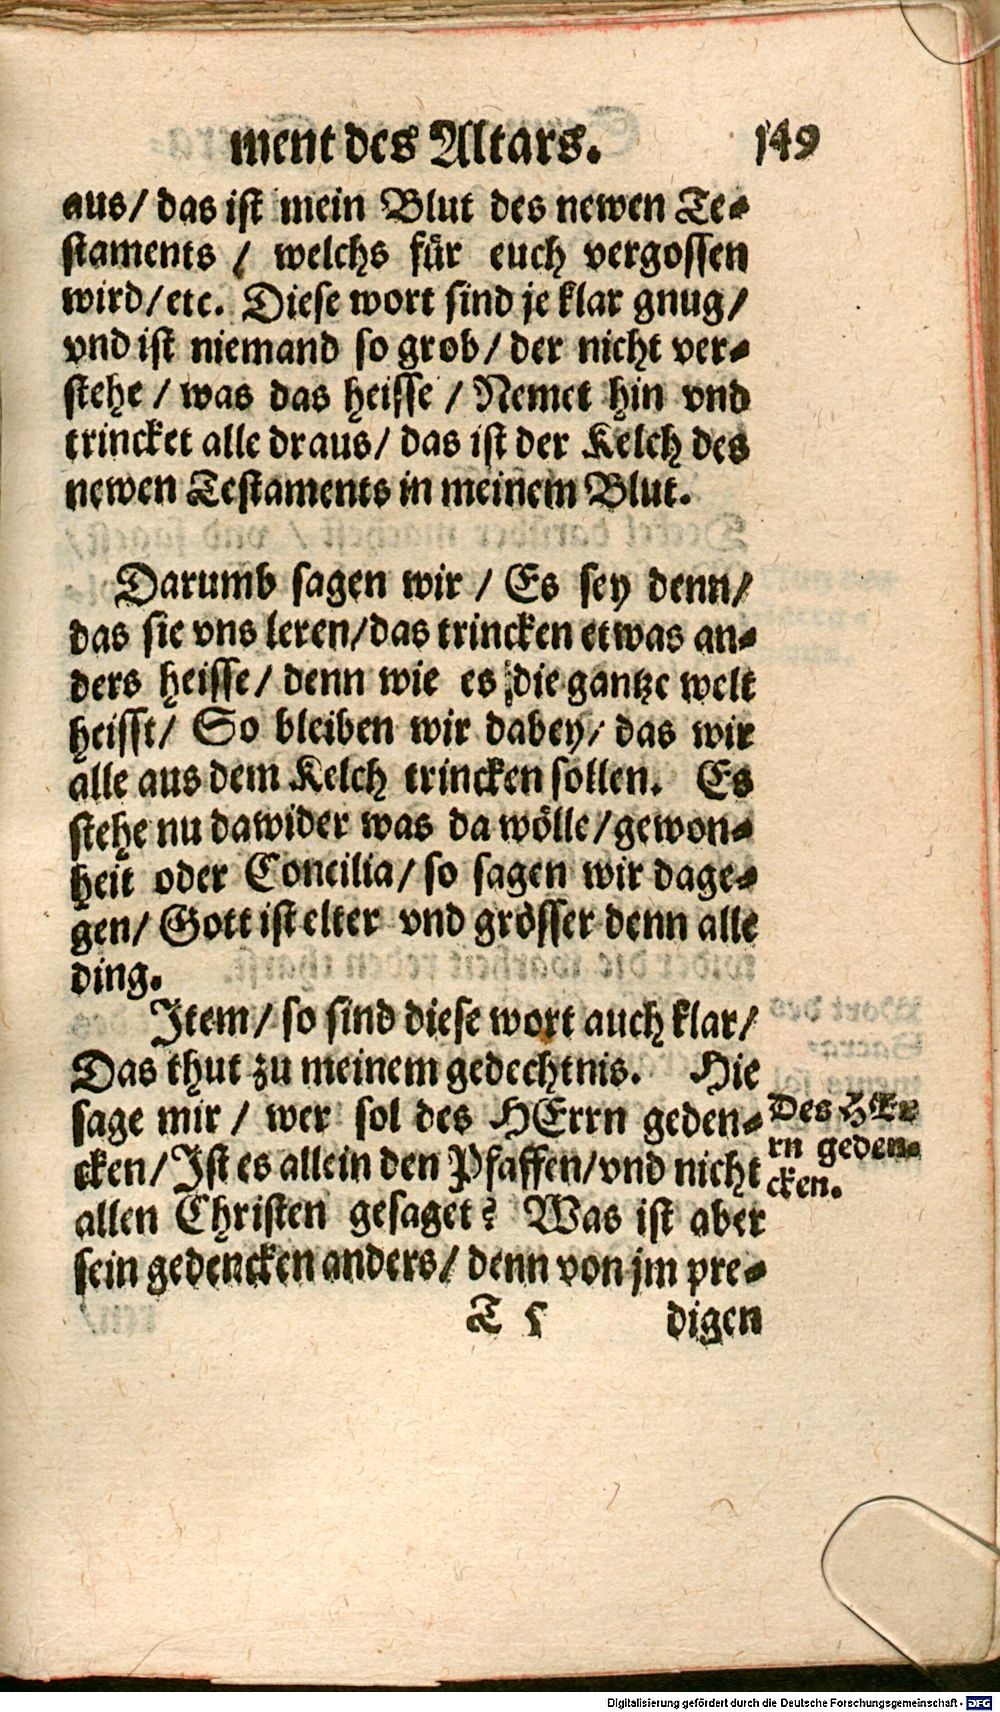 ment des Altars. 149
aus/ das ist mein Blut des newen Te⸗
staments / welchs für euch vergossen
wird/ etc. Diese wort sind je klar gnug/
vnd ist niemand so grob/ der nicht ver⸗
stehe / was das heisse / Nemet hin vnd
trincket alle draus/ das ist der Kelch des
newen Testaments in meinem Blut.
Darumb sagen wir / Es sey denn/
das sie vns leren/ das trincken etwas an⸗
ders heisse/ denn wie es die gantze welt
heisst/ So bleiben wir dabey/ das wir
alle aus dem Kelch trincken sollen. Es
stehe nu dawider was da wölle/ gewon⸗
heit oder Concilia/ so sagen wir dage⸗
gen/ Gott ist elter vnd grösser denn alle
ding.
Item/ so sind diese wort auch klar/
Das thut zu meinem gedechtnis. Hie
sage mir / wer sol des HErrn geden⸗
cken/ Ist es allein den Pfaffen/ vnd nicht
allen Christen gesaget? Was ist aber
sein gedencken anders/ denn von jm pre⸗
T 5 digen
Des HEr
rn geden⸗
cken.
Digitalisierung gefördert durch die Deutsche Forschungsgemeinschaft - DFG